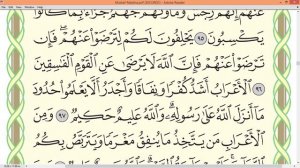 عَنْهُمْ إِنَّهُمْ رِجْسٌ وَمَأْوَىٰهُمْ جَهَنَّمُ جَزَآءًۢ بِمَا كَانُوا۟
يَكْسِبُونَ ٩٥ يَحْلِفُونَ لَكُمْ لِتَرْضَوْا۟ عَنْهُمْ فَإِن
تَرْضَوْا۟ عَنْهُمْ فَإِنَّ ٱللَّهَ لَا يَرْضَىٰ عَنِ ٱلْقَوْمِ ٱلْفَٰسِقِينَ
٩٦ ٱلْأَعْرَابُ أَشَدُّ كُفْرًا وَنِفَاقًا وَأَجْدَرُ أَلَّا يَعْلَمُوا۟ حُدُودَ
مَآ أَنزَلَ ٱللَّهُ عَلَىٰ رَسُولِهِۦ وَٱللَّهُ عَلِيمٌ حَكِيمٌ ٩٧ وَمِنَ
ٱلْأَعْرَابِ مَن يَتَّخِذُ مَا يُنفِقُ مَغْرَمًا وَيَتَرَبَّصُ بِكُمُ